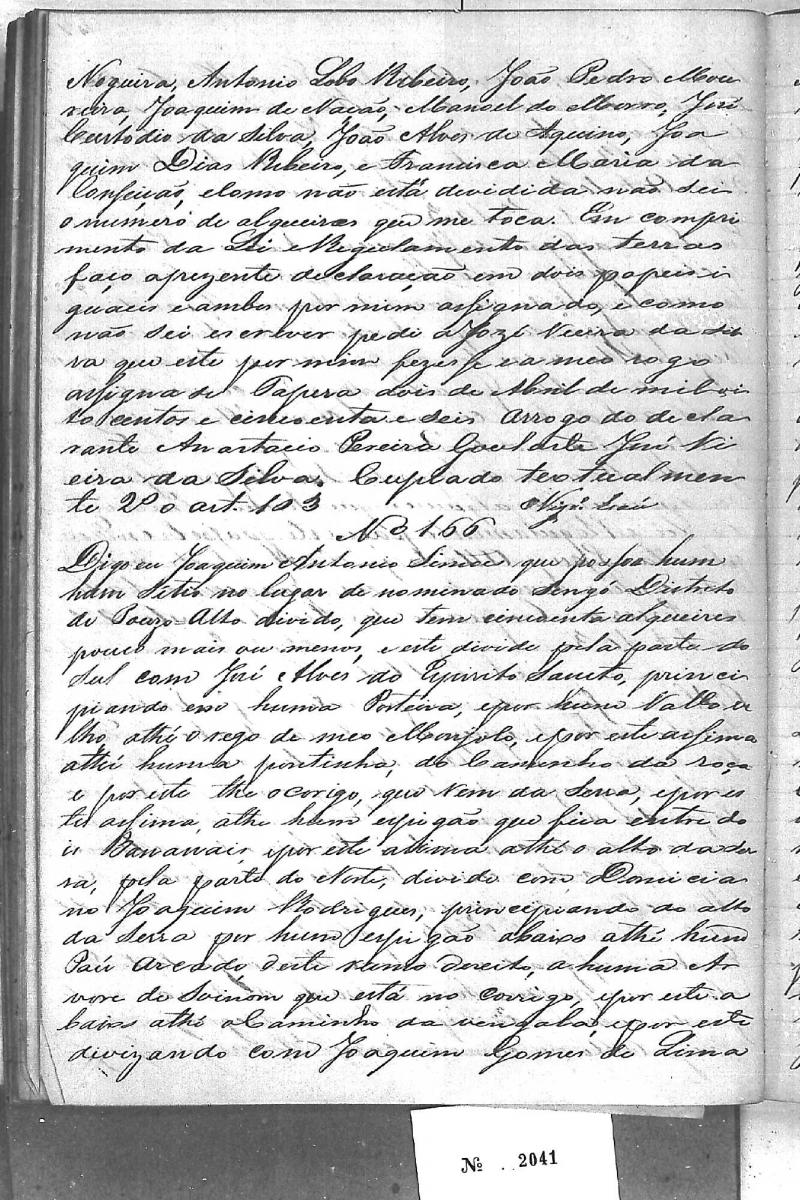 Nogueira, Antonio Lobo Ribeiro, João Pedro Mou
reira, Joaquim de Nação, Manoel do Morro, José
Custodio da Silva, João Alves de Aquino, Joa
quim Dias Ribeiro, e Francisca Maria da
Conseicão, e como não está devidida não sei
o numero de alqueires que me toca. Em compri
mento da Lei e Regulamento das terras
faço aprezente declaração em dois papeis i
guaes e ambos por mim assignado, e como
não sei escrever pedi a Jozé Vieira da Sil
va que este por mim fezesse e a meo rogo
assigna se Tapera dois de Abril de mil oi
to centos e cincoenta e seis Arrogo do decla
rante Anastacio Pereira Goularte José Vi
eira da Silva. Cupiado textualmen
te 2º o art. 103
Nº 166
Digo eu Joaquim Antonio que possou hum
hum Sitio no lugar denominado Sengó Distrito
de Pouzo-Alto divido, que tem cincoenta alqueires
pouco mais ou menos, e este divide pela parte do
Sul com José Alves do Espirito Santo, princi
piando em huma Porteira, e por hum Vallo ve
lho, athé o rego de meo Monjolo, e por este assima
athé huma pontinha, do Caminho da roça
e por este the o corigo, que vem da Serra, e por es
te assima, athe hum espigão que fica entre do
is Bananais, e por este assima athé o alto da Ser
ra, pela parte do Norte, divide com Domicia
no Joaquim Rodrigues, principiando do alto
da Serra por hum espigão abaixo athé hum
Páu Arcado deste rumo direito, a huma Ar
vore de que está no corigo, e por este a
baixo athé o Caminho da vengala, e por este
divizando com Joaquim Gomes de Lima
Nº 2041